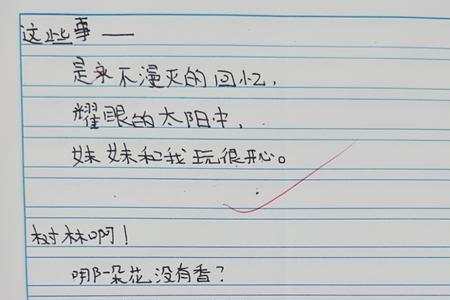 这些事——
是永不漫灭的回忆,
耀眼的太阳中,
妹妹和我玩很开心。
树林啊!
哪一朵花没有香?